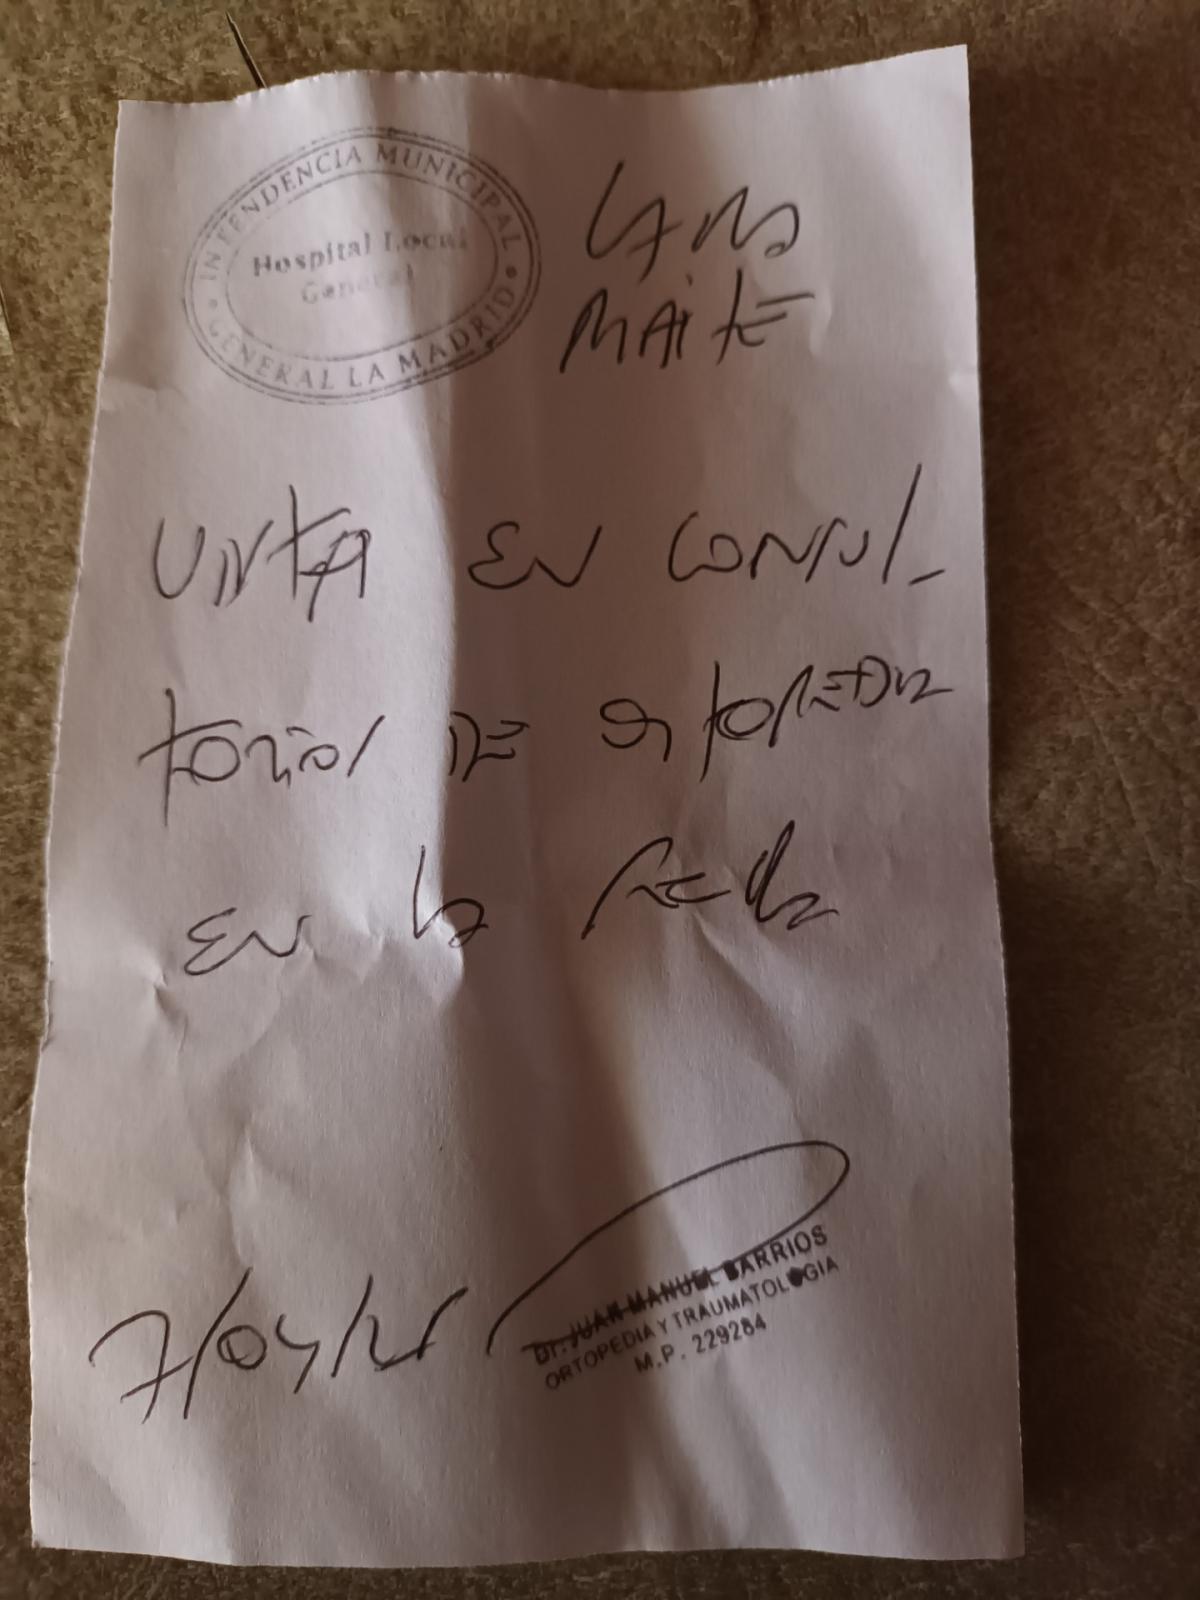 INTENDENCIA MUNICIPAL
Hospital Local
General
GENERAL LA MADRID
MAITE
VISTA EN CONSUL-
TORIOS DE ORTOPEDIA
EN LA FECHA
Dr. JUAN MANUEL BARRIOS
ORTOPEDIA Y TRAUMATOLOGIA
M.P. 229284